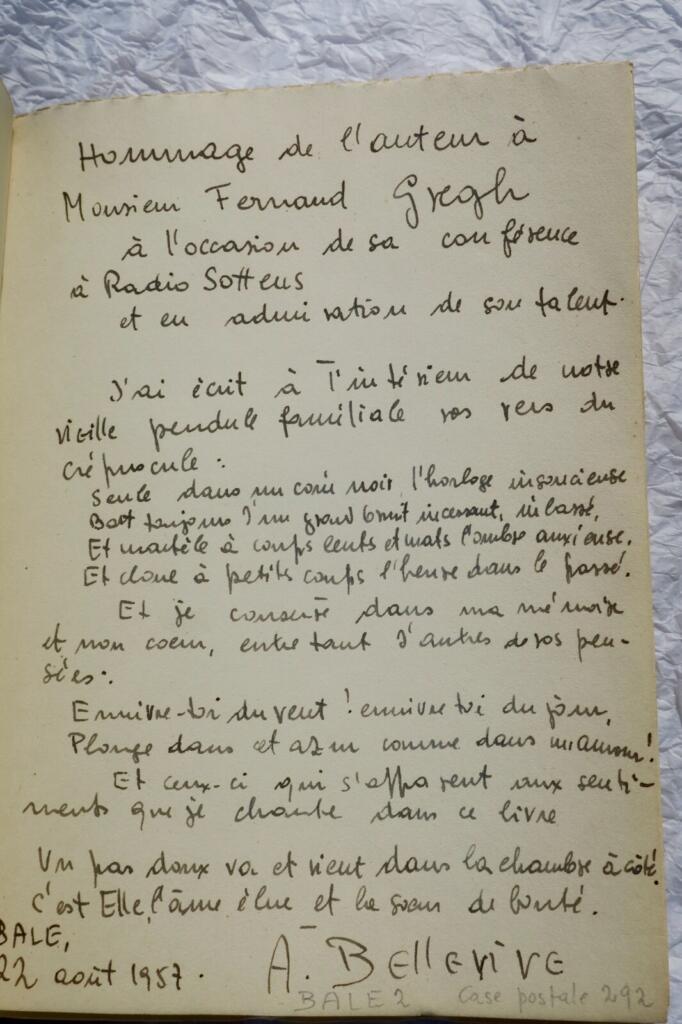 Hommage de l'auteur à
Monsieur Fernand Gregh
à l'occasion de sa conférence
à Radio Sottens
et en admiration de son talent.
J'ai écrit à l'intérieur de notre
vieille pendule familiale vos vers du
crépuscule :
Seule dans un coin noir, l'horloge insoucieuse
Bat toujours d'un grand bruit incessant, inlassé,
Et martèle à coups lents et mats l'ombre anxieuse,
Et cloue à petits coups l'heure dans le passé.
Et je conserve dans ma mémoire
et mon coeur, entre tant d'autres de vos pen-
sées :
Enivre-toi du vent ! enivre toi du jour,
Plonge dans cet azur comme dans un amour !
Et ceux-ci qui s'apparent aux senti-
ments que je chante dans ce livre
Un pas doux va et vient dans la chambre à côté.
C'est Elle, l'âme élue et la soeur de bonté.
BALE,
22 août 1957. A. Bellevive
BALE 2 Case postale 292